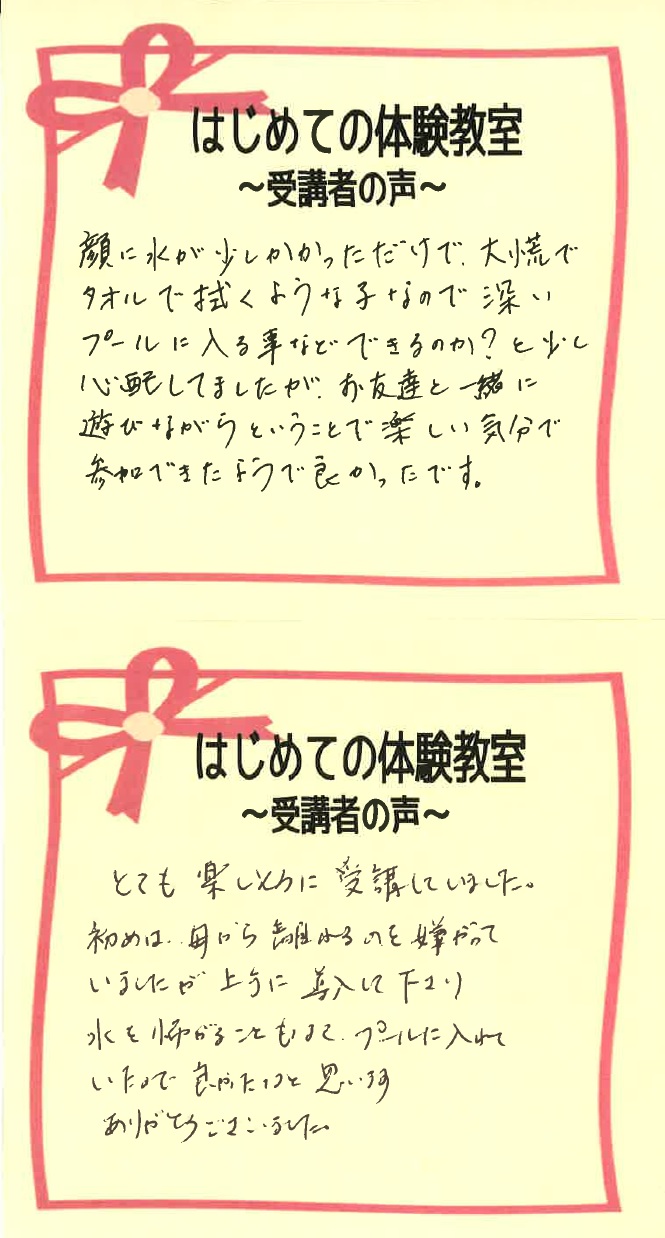 はじめての体験教室
～受講者の声～
顔に水が少しかかっただけで、大慌で
タオルで拭くような子なので深い
プールに入る事などできるのか?と少し
心配してましたが、お友達と一緒に
遊びながらということで楽しい気分で
参加できたようで良かったです。
はじめての体験教室
～受講者の声～
とても楽しそうに受講していました。
初めは、母から離れるのを嫌がって
いましたが上手に導入して下さり
水を怖がることもなく、プールに入れて
いたので良かったなと思います
ありがとうございました。